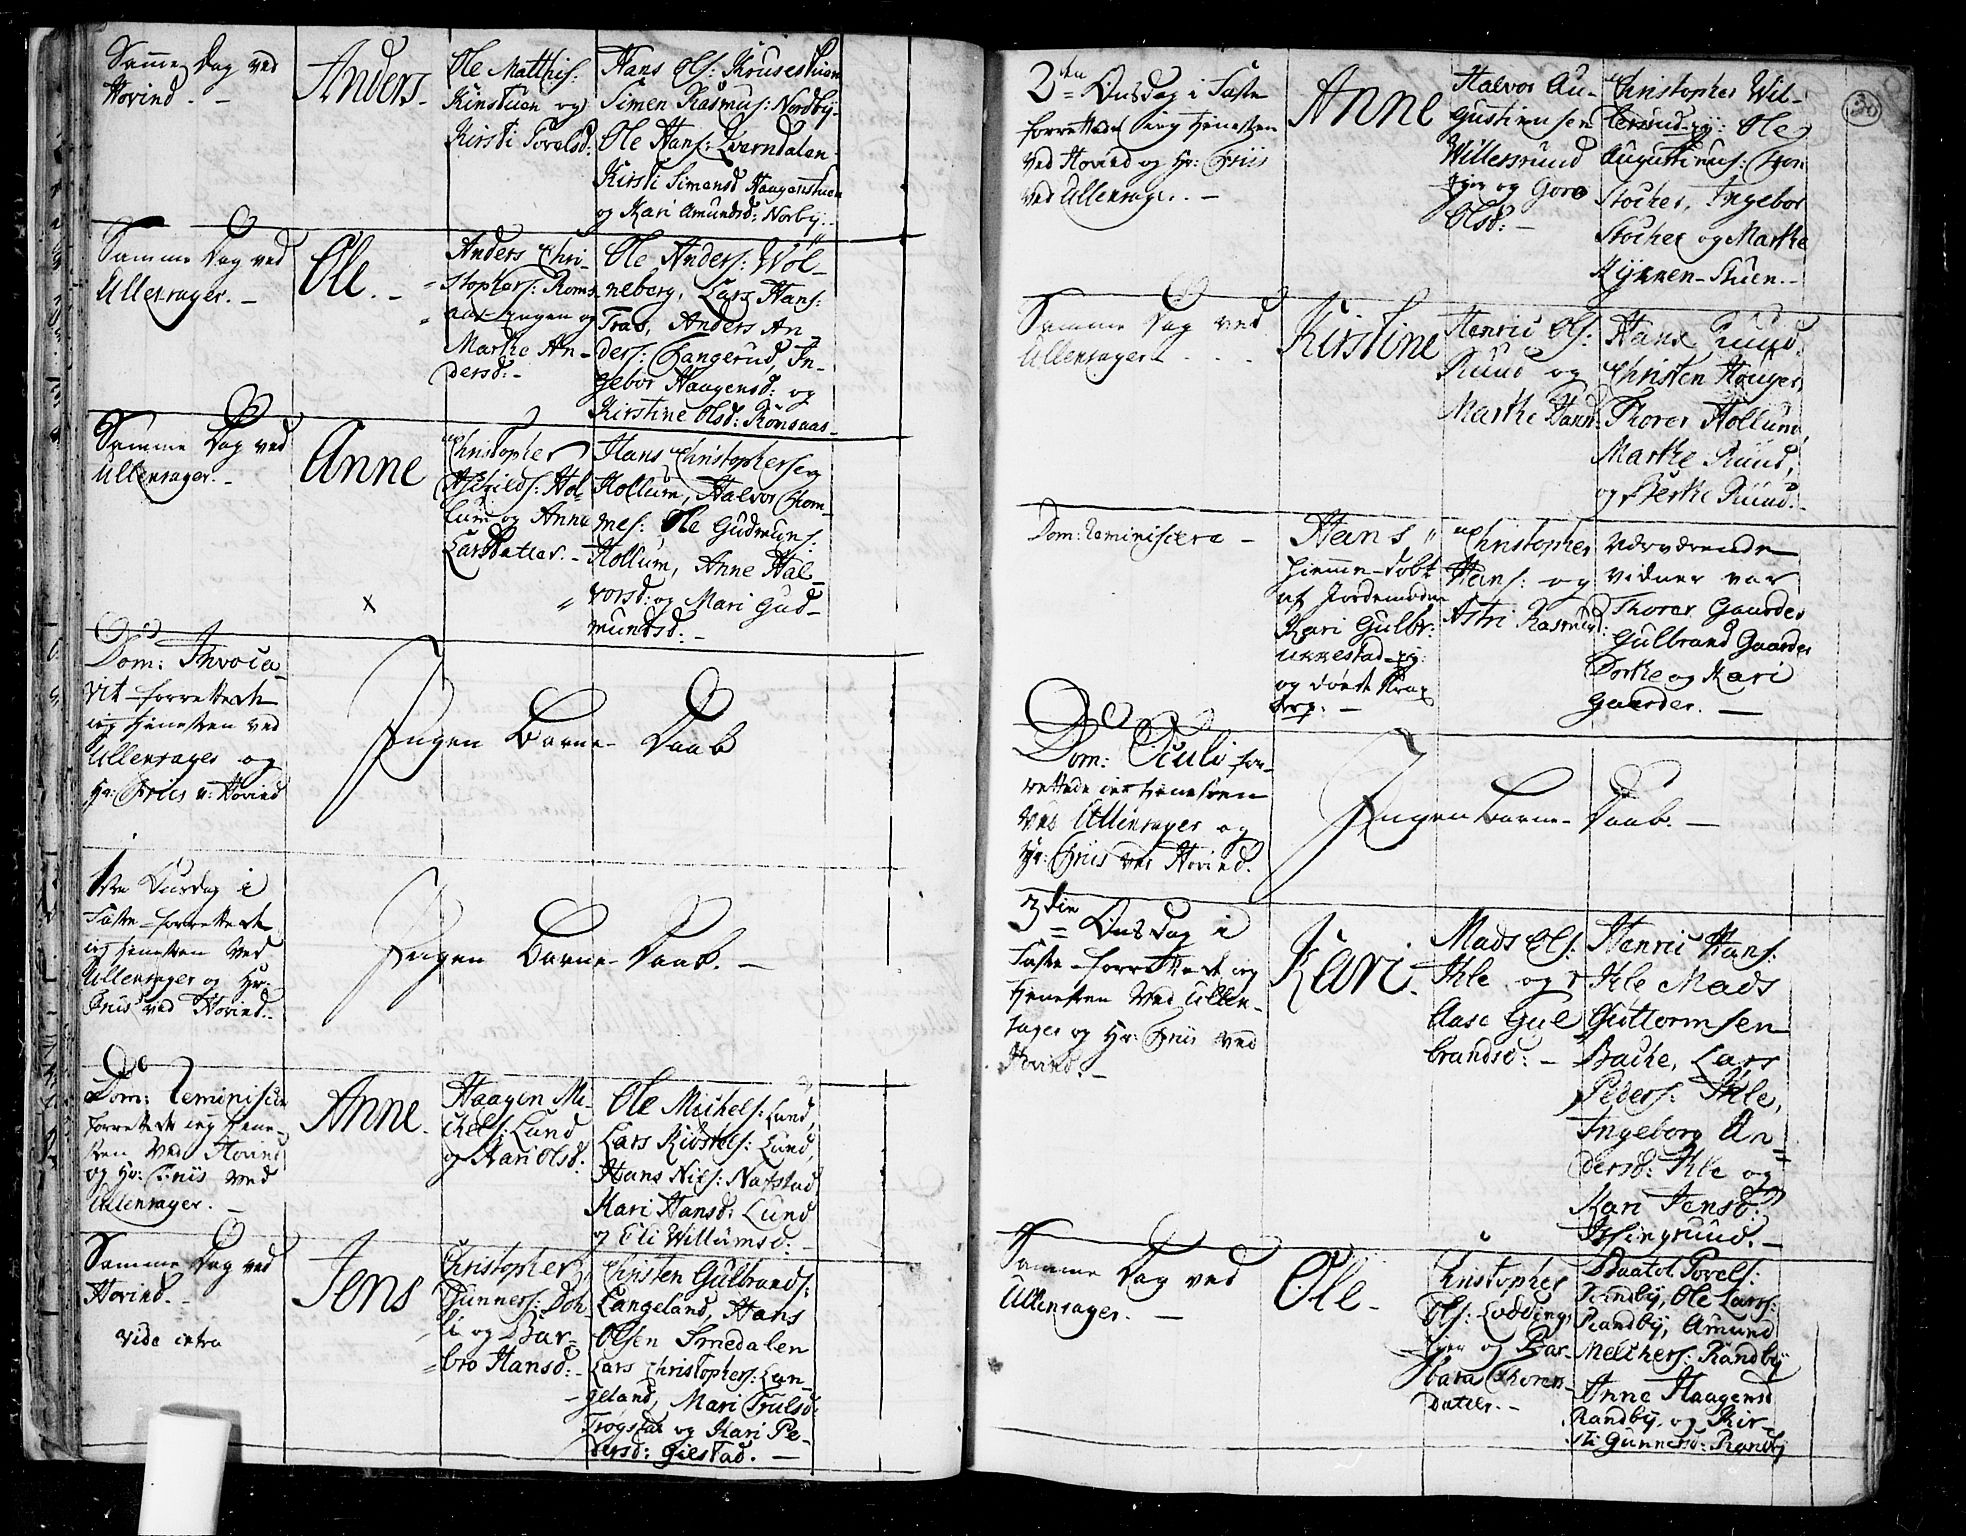 Samme Dag ved
Hovind. -
Anders -
Ole Matthis:
og
Kirsti Povelsd:
Hans Ols: Krusestuen
Simen Rasmus: Nordby-
Ole Hans: Qverndalen
Kirsti Simensd Haagenstuen
og Kari Amundsd: Norby: -
Samme Dag ved
Ullensager. -
Ole. -
Anders Chri-
stophers: Roms-
aas-engen og
Marthe An-
dersd: -
Ole Anders: Wol-
neberg, Lars Hans:
Trao, Anders An-
ders: Fangerud, In-
gebor Haagensd: og
Kirstine Olsd: Romsaas-
Samme Dag ved
Ullensager. -
Anne
Christopher
Hol-
lum og Anne
Larsdatter. -
Hans Christophersen
Hollum, Halvor
Ole Gudmuns:
Hollum, Anne Hal-
vorsd: og Mari Gud-
mundsd: -
x
Dom: Invoca-
vit forrettede
ieg tienesten ved
Ullensager og
Hr: Friis v: Hovind
Ingen Barne-Daab
1ste Onsdag i
Faste forrettede
ieg tienesten ved
Ullensager og Hr:
Friis ved Hovind. -
Ingen Barne-Daab. -
Dom: Reminiscere
forrettede ieg tiene-
sten ved Hovind
og Hr: Friis ved
Ullensager. -
Anne -
Haagen Mi-
chels: Lund
og Kari Olsd:
Ole Michels: Lund,
Lars Lund,
Hans Nils: Nafstad,
Mari Hansd: Lund
og Eli Willumsd: -
Samme Dag ved
Hovind. -
vide intra
Jens
Christopher
Gunners: Doh-
li og Bar-
bro Hansd: -
Christen Gulbrands:
Langeland, Hans
Olsen Smedalen
Lars Christophers: Lan-
geland, Mari Trulsd:
Trøgstad og Kari Pe-
dersd: Gielstad. -
30
2den Onsdag i Faste
forrettede ieg tienesten
ved Hovind og Hr: Friis
ved Ullensager. -
Anne
Halvor Au-
gustinusen
Willersruud
eyer og Goro
Olsd: -
Christopher Wil-
lersrud-ey: Ole
Augustinus:
Stocker, Ingebor
Stocker og Marthe
Stuen. -
Samme Dag ved
Ullensager. - -
Kirstine
Henric Ols:
Ruud og
Marthe Hansd:
Hans Ruud,
Christen Houger,
Thorer Hollum,
Marthe Ruud,
og Berthe Ruud. -
Dom: Reminiscere -
Hans
hiemme-døbt
af Jordemoderen
Kari Gulbr:
ey:
og døde strax
derp: -
Christopher
Hans: og
Astri Rasmusd:
værende
vidner var
Thorer Gaarder
Gulbrand Gaarder
Dorthe og Kari
Gaarder. -
Dom: Oculi for-
rettede ieg tienesten
ved Ullensager og
Hr: Friis ved Hovind.
Ingen Barne-Daab. -
3die Onsdag i
Faste forrettede ieg
tienesten ved Ullen-
sager og Hr: Friis ved
Hovind. -
Kari.
Mads Ols:
Ihle og
Aase Gul
brandsd: -
Henric Hans:
Ihle Mads
Guttormsen
Bache, Lars
Peders: Ihle,
Ingeborg An-
dersd: Ihle og
Kari Jensd:
-
Samme Dag ved
Ullensager. -
Ole -
Christopher
Ols: Lodding,
eyer og Bar-
bara Thorers-
datter. -
Baatol Povels:
Randby, Ole Lars:
Randby, Amund
Melchers: Randby
Anne Haagensd
Randby, og Kir-
sti Gunnersd: Randby